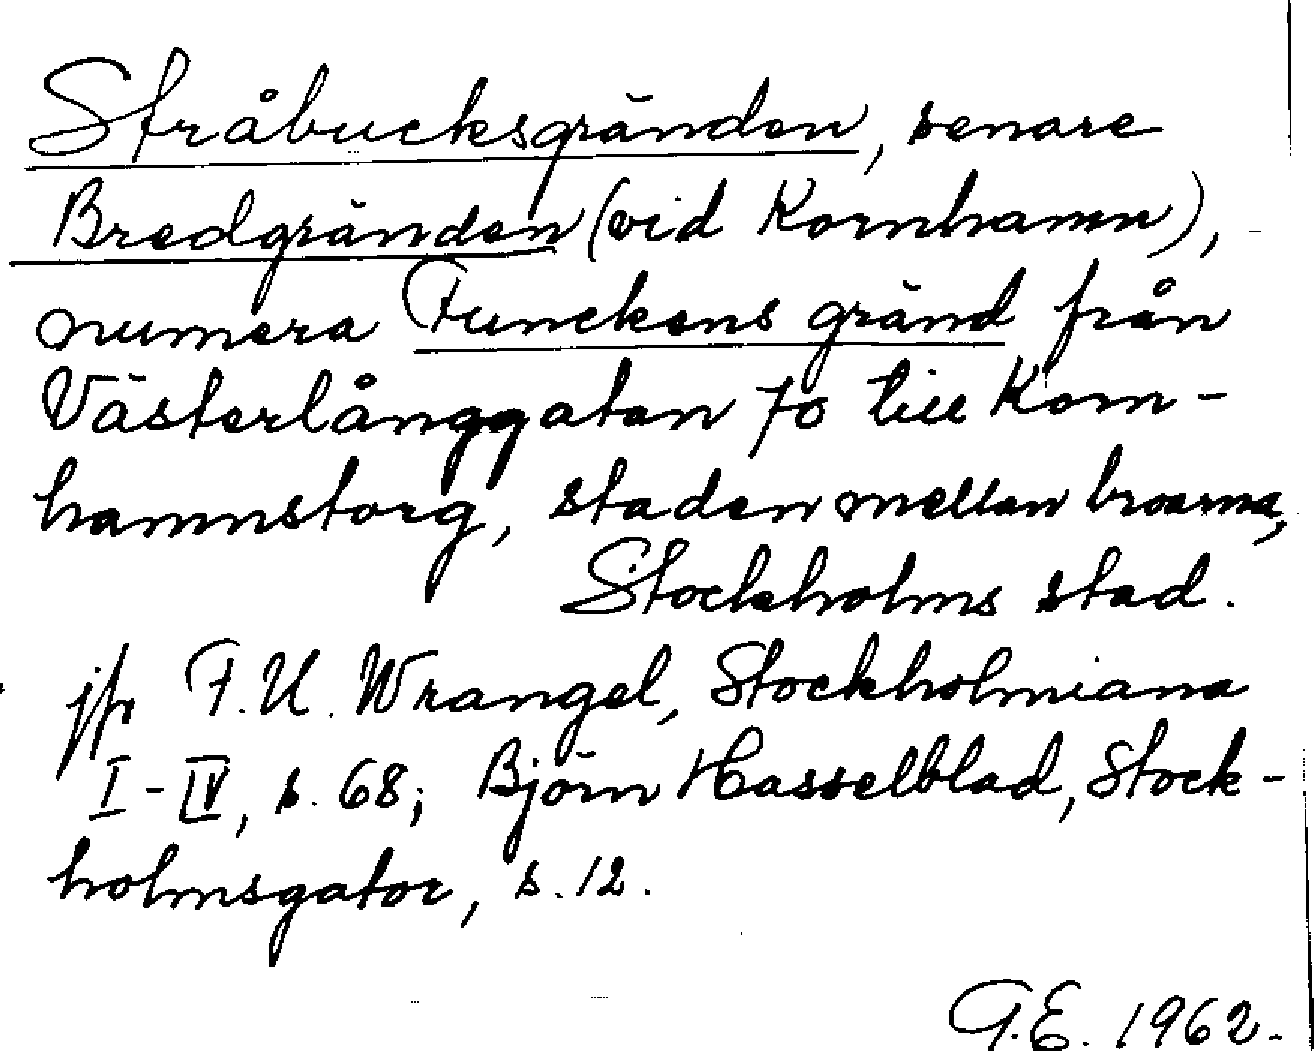 Stråbucksgränden, senare
Bredgränden (vid Kornhamn),
numera Funckens gränd från
Västerlånggatan 70 till Korn-
hamnstorg, staden mellan broarna,
Stockholms stad.
jfr F.U. Wrangel, Stockholmiana
I-IV, s. 68; Björn Hasselblad, Stock-
holmsgator, s. 12.
G.E. 1962.